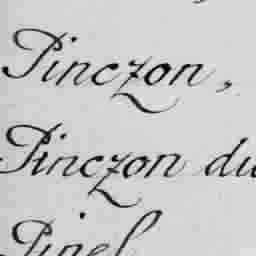 Pinczon,
Pinczon du
Pinel